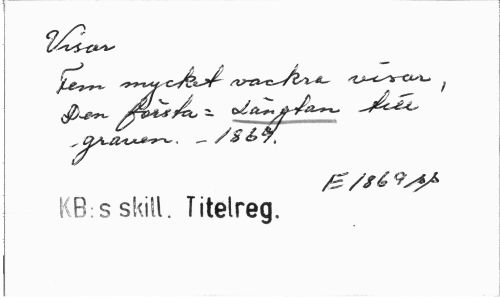 Visor
Fem mycket vackra visor,
Den första = Längtan till
graven. - 1869.
E 1869 pp
KB:s skill. Titelreg.